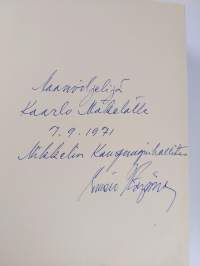 Maanviljelijä
Kaarlo Mäkelälle
7.9.1971
Mikkelin Kaupunginhallitus